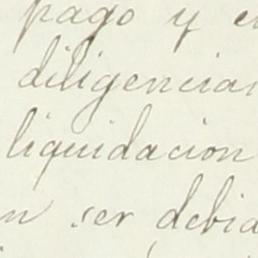 pago y e
diligencias
liquidacion
n ser debid